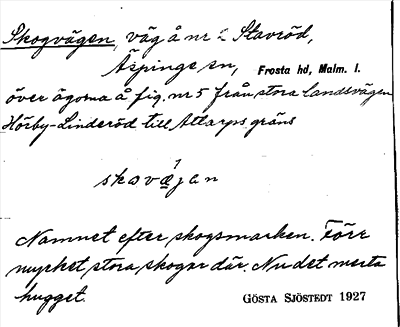 Skogvägen, väg å nr 2 Stavröd,
Äspinge sn, Frosta hd, Malm. l.
över ägorna å fig. nr 5 från stora landsvägen
Hörby-Linderöd till Attarps gräns
skovæjan
Namnet efter skogsmarken. Förr
mycket stora skogar där. Nu det mesta
hugget. GÖSTA SJÖSTEDT 1927